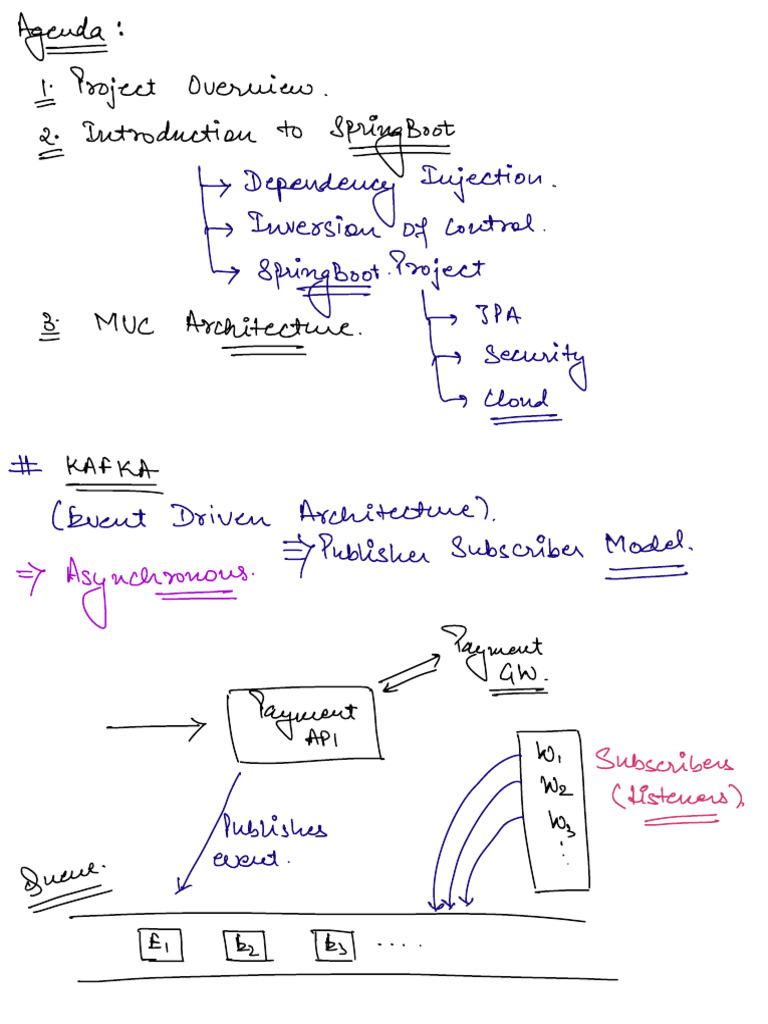 Agenda:
1. Project Overview.
2. Introduction to SpringBoot
→ Dependency Injection.
→ Inversion of Control.
→ SpringBoot Project
→ JPA
→ Security
→ Cloud
3. MVC Architecture.
# KAFKA
(Event Driven Architecture).
⇒ Publisher Subscriber Model.
⇒ Asynchronous.
Payment
GW.
Payment
API
W1
W2
W3
⋮
Subscribers
(Listeners).
Publishes
event.
Queue.
E1 E2 E3 ....